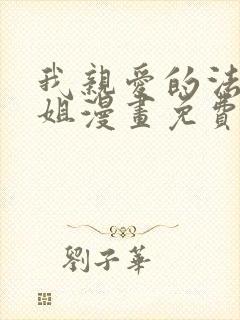 我親愛的法
姐漫畫免費
劉子華